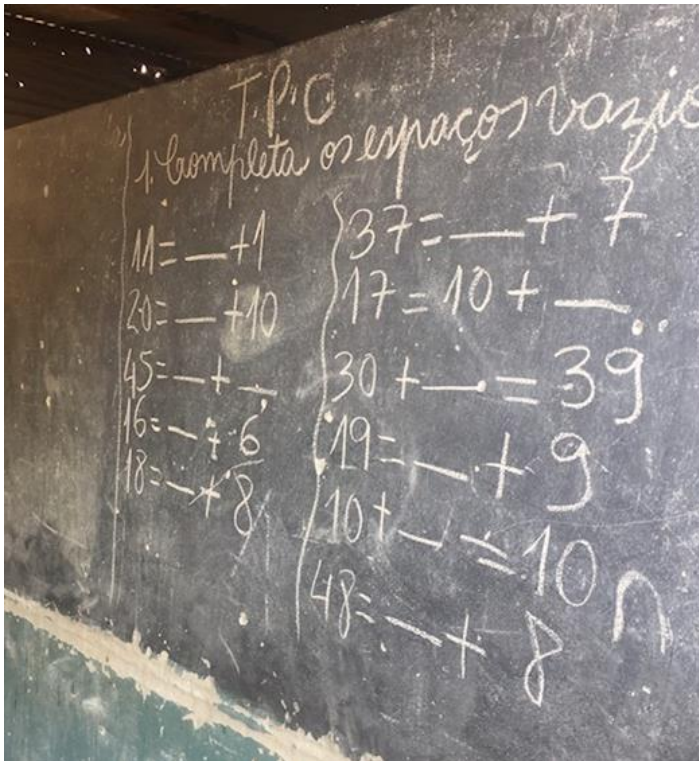 T.P.C
1. Completa os espaços vazio
11=__+1
20=__+10
45=__+__
16=__+6
18=__+8
37=__+7
17=10+__
30+__=39
19=__+9
10+__=10
48=__+8